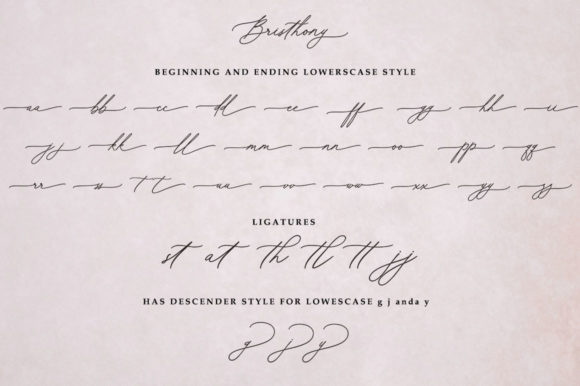 Bristhony
BEGINNING AND ENDING LOWERSCASE STYLE
aa bb cc dd ee ff gg hh ii
jj kk ll mm nn oo pp qq
rr ss tt uu vv ww xx yy zz
LIGATURES
st at th tl tt jj
HAS DESCENDER STYLE FOR LOWESCASE g j anda y
g j y